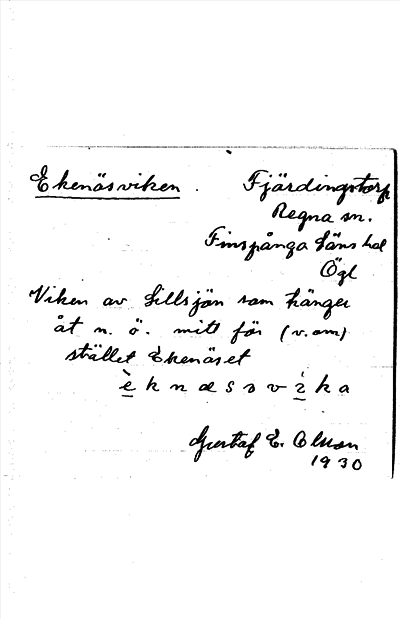 Ekenäsviken. Fjärdingstorp
Regna sn.
Finspånga läns hd
Ögl
Viken av Lillsjön som hänger
åt n. ö. mitt för (v. om)
stället Ekenäset
è k n æ s ɔ v ì k a
Gustaf E. Olsson
1930